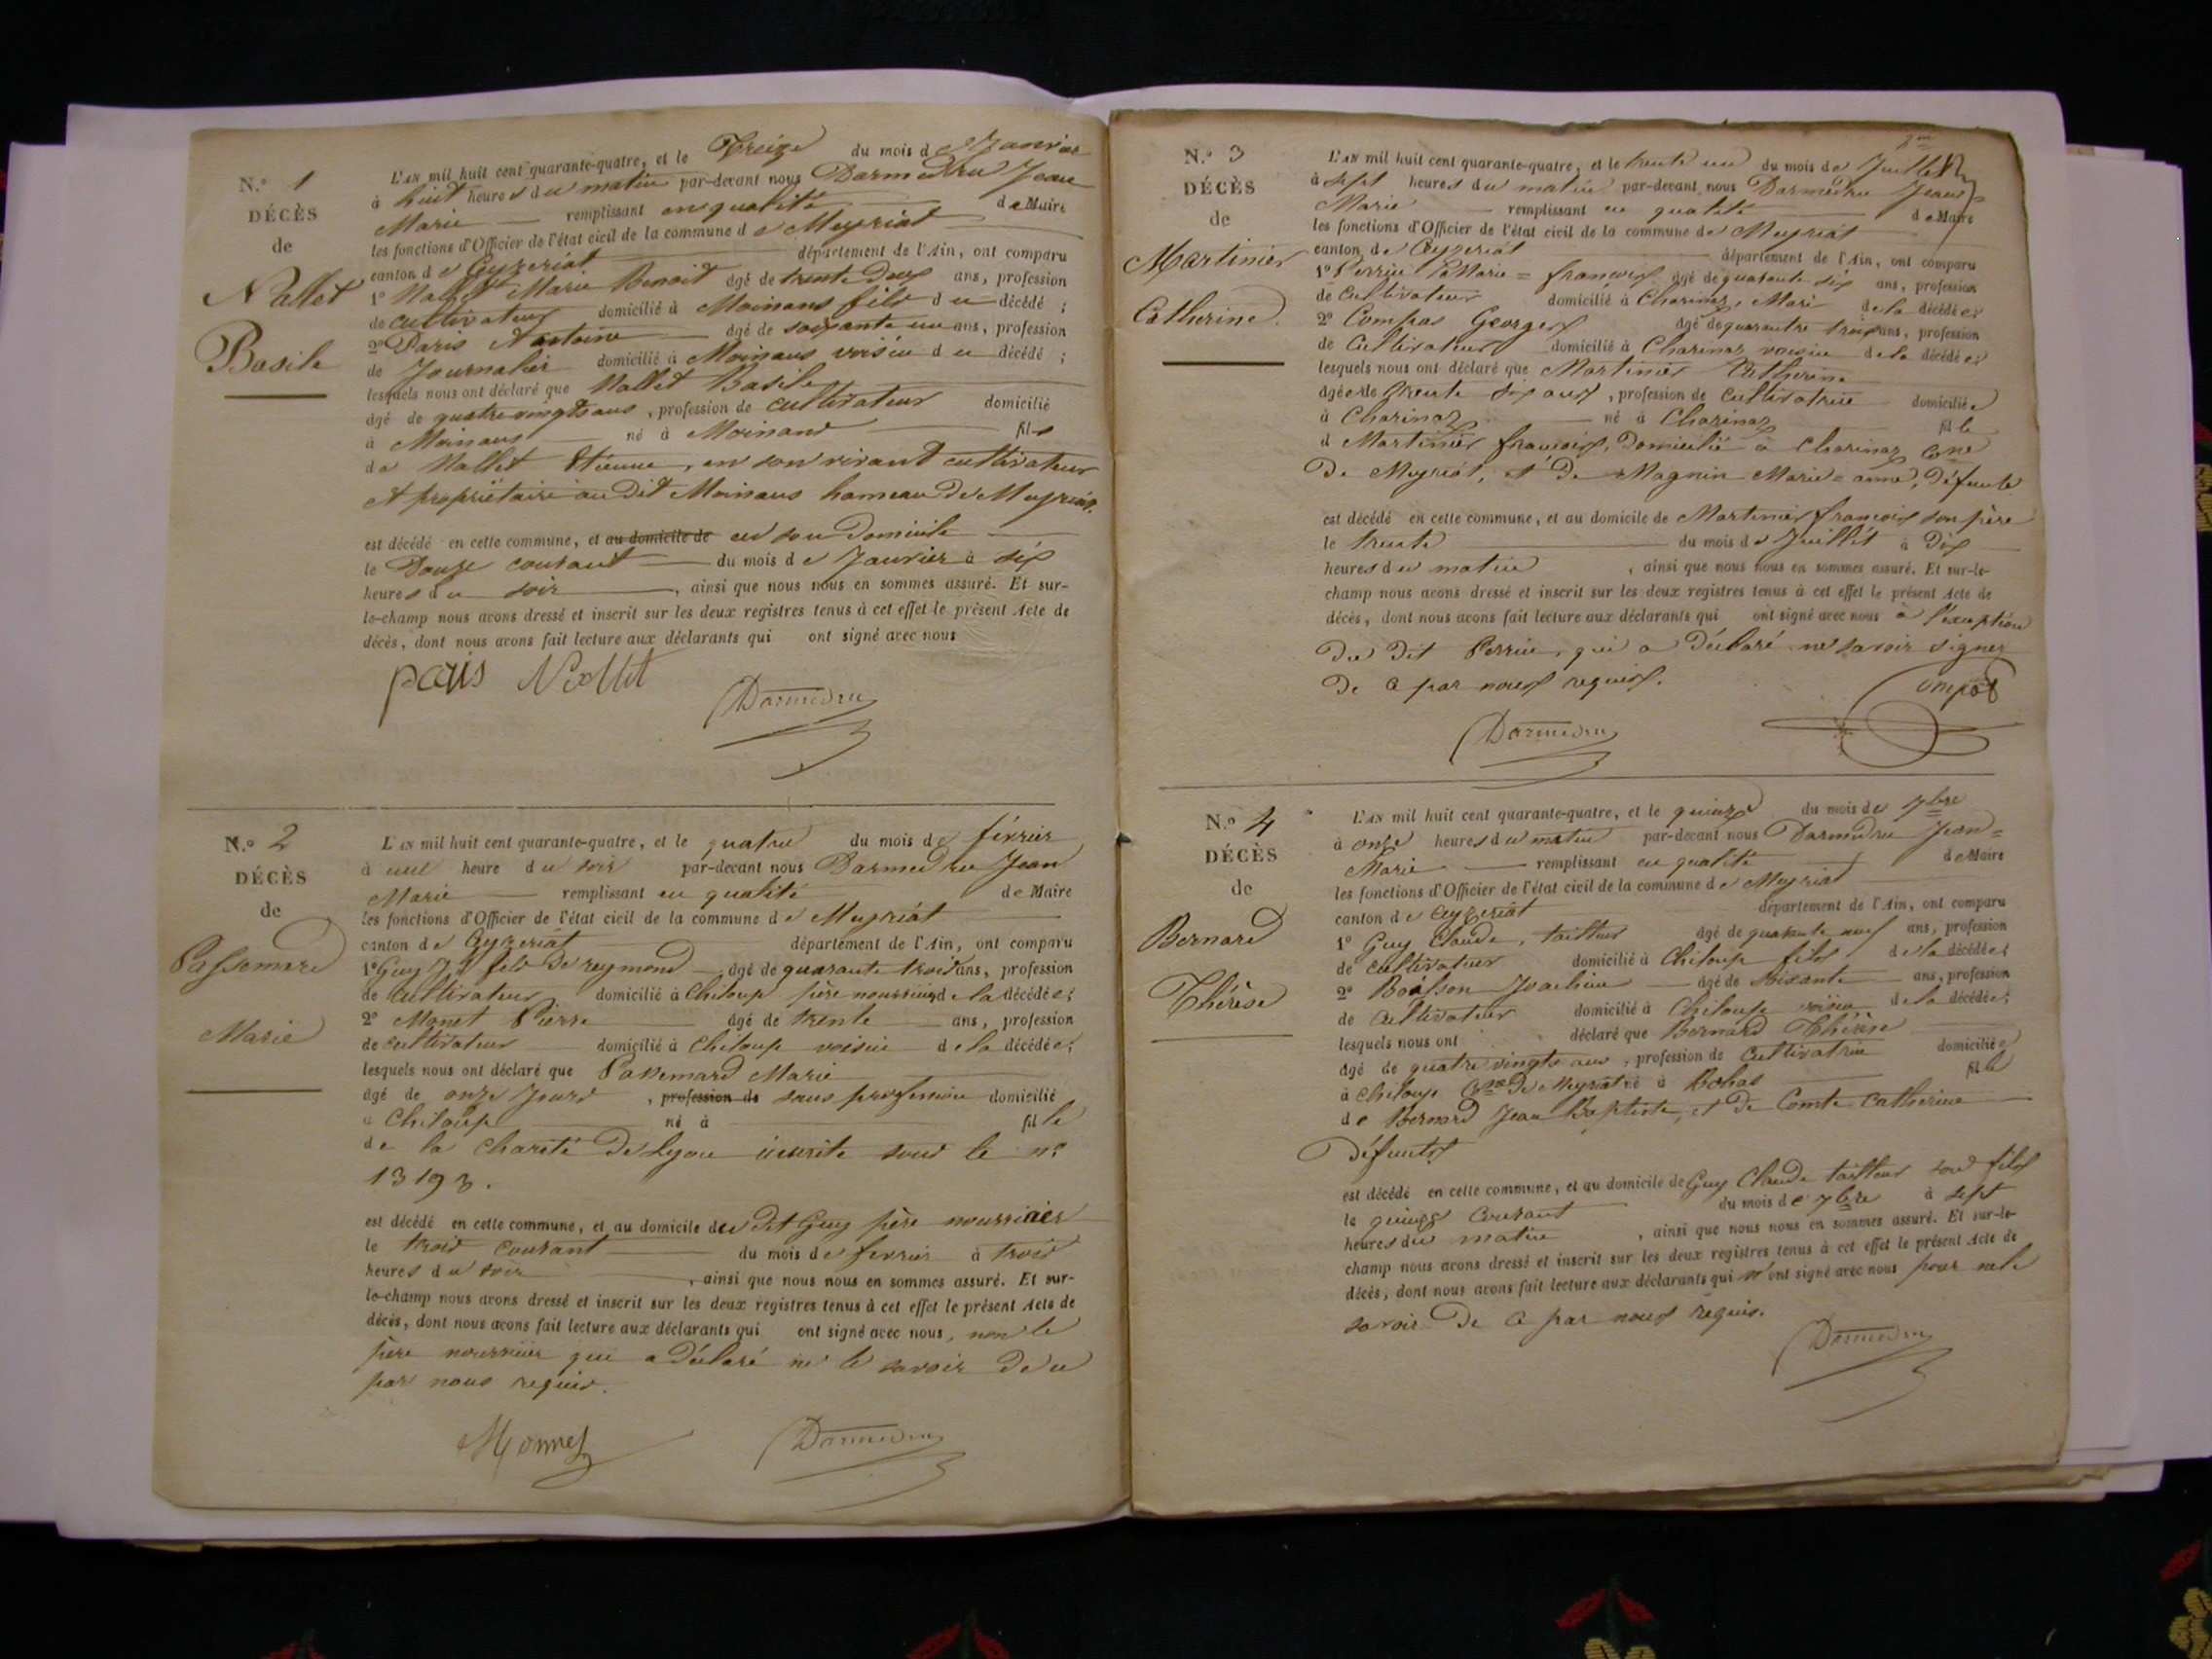 N.° 1
DÉCÈS
de
Nallet
Basile
L'AN mil huit cent quarante-quatre, et le Treize du mois de Janvier
à huit heures du matin par-devant nous Darmedru Jean
Marie remplissant en qualité de Maire
les fonctions d'Officier de l'état civil de la commune de Meyriat
canton de Ceyzeriat département de l'Ain, ont comparu
1° Nallet Marie Benoit âgé de trente deux ans, profession
de cultivateur domicilié à Moinans fils du décédé ;
2° Paris Antoine âgé de soixante un ans, profession
de Journalier domicilié à Moinans voisin du décédé ;
lesquels nous ont déclaré que Nallet Basile
âgé de quatre vingts ans, profession de cultivateur domicilié
à Moinans né à Moinans fils
de Nallet Etienne, en son vivant cultivateur
et propriétaire au dit Moinans hameau de Meyriat.
est décédé en cette commune, et au domicile de en son domicile
le Douze courant du mois de Janvier à six
heures du soir, ainsi que nous nous en sommes assuré. Et sur-
le-champ nous avons dressé et inscrit sur les deux registres tenus à cet effet le présent Acte de
décès, dont nous avons fait lecture aux déclarants qui ont signé avec nous
paris Nallet
Darmedru
N.° 2
DÉCÈS
de
Passemard
Marie
L'AN mil huit cent quarante-quatre, et le quatre du mois de février
à une heure du soir par-devant nous Darmedru Jean
Marie remplissant en qualité de Maire
les fonctions d'Officier de l'état civil de la commune de Meyriat
canton de Ceyzeriat département de l'Ain, ont comparu
1° Guy fils de reymond âgé de quarante trois ans, profession
de cultivateur domicilié à Chiloup père nourricier de la décédée ;
2° Monet Pierre âgé de trente ans, profession
de cultivateur domicilié à Chiloup voisin de la décédée ;
lesquels nous ont déclaré que Passemard Marie
âgé de onze jours, profession de sans profession domicilié
à Chiloup né à fille
de la charité De Lyon inscrite sous le n°
13193.
est décédé en cette commune, et au domicile du dit Guy père nourricier
le trois courant du mois de fevrier à trois
heures du soir, ainsi que nous nous en sommes assuré. Et sur-
le-champ nous avons dressé et inscrit sur les deux registres tenus à cet effet le présent Acte de
décès, dont nous avons fait lecture aux déclarants qui ont signé avec nous, non le
père nourricier qui a déclaré ne le savoir de ce
par nous requis.
Monnet
Darmedru
N.° 3
DÉCÈS
de
Martinier
Catherine.
L'AN mil huit cent quarante-quatre, et le trente un du mois de Juillet
à sept heures du matin par-devant nous Darmedru Jean
Marie remplissant en qualité de Maire
les fonctions d'Officier de l'état civil de la commune de Meyriat
canton de Ceyzeriat département de l'Ain, ont comparu
1° Perrin Marie = françois âgé de quarante six ans, profession
de cultivateur domicilié à Charinaz, Mari de la décédée ;
2° Compas Georges âgé de quarante trois ans, profession
de cultivateur domicilié à Charinaz voisin de la décédée ;
lesquels nous ont déclaré que Martinier Catherine
âgée de trente six ans, profession de cultivatrice domiciliée
à Charinaz né à Charinaz fille
d Martinier françois, Domicilié à Charinaz Cne
De Meyriat, et De Magnin Marie = anne, Défunte
est décédé en cette commune, et au domicile de Martinier françois son père
le trente du mois de Juillet à Dix
heures du matin, ainsi que nous nous en sommes assuré. Et sur-le-
champ nous avons dressé et inscrit sur les deux registres tenus à cet effet le présent Acte de
décès, dont nous avons fait lecture aux déclarants qui ont signé avec nous à l'exception
Du Dit Perrin, qui a Déclaré ne savoir signer
De ce par nous requis.
Compas
Darmedru
N.° 4
DÉCÈS
de
Bernard
Thérèse
L'AN mil huit cent quarante-quatre, et le quinze du mois de 7bre
à onze heures du matin par-devant nous Darmedru Jean =
Marie remplissant en qualité de Maire
les fonctions d'Officier de l'état civil de la commune de Meyriat
canton de Ceyzeriat département de l'Ain, ont comparu
1° Guy Claude, tailleur âgé de quarante neuf ans, profession
de cultivateur domicilié à Chiloup fils de la décédée ;
2° Boisson Joachim âgé de soixante ans, profession
de cultivateur domicilié à Chiloup voisin de la décédée ;
lesquels nous ont déclaré que Bernard Thérèse
âgé de quatre vingts ans, profession de cultivatrice domiciliée
à Chiloup Cne De Meyriat né à Bohas fille
de Bernard Jean Baptiste, et De Comte Catherine
Défunts
est décédé en cette commune, et au domicile de Guy Claude tailleur son fils
le quinze Courant du mois de 7bre à sept
heures du matin, ainsi que nous nous en sommes assuré. Et sur-le-
champ nous avons dressé et inscrit sur les deux registres tenus à cet effet le présent Acte de
décès, dont nous avons fait lecture aux déclarants qui n'ont signé avec nous pour ne le
savoir De ce par nous requis.
Darmedru